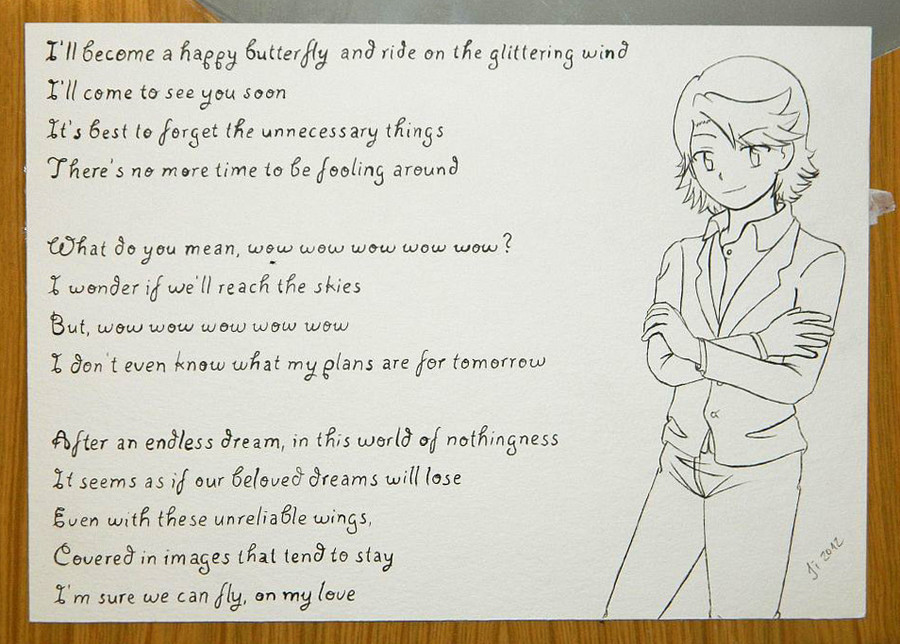 I'll become a happy butterfly and ride on the glittering wind
I'll come to see you soon
It's best to forget the unnecessary things
There's no more time to be fooling around
What do you mean, wow wow wow wow wow?
I wonder if we'll reach the skies
But, wow wow wow wow wow
I don't even know what my plans are for tomorrow
After an endless dream, in this world of nothingness
It seems as if our beloved dreams will lose
Even with these unreliable wings,
Covered in images that tend to stay
I'm sure we can fly, on my love
Ji 2012